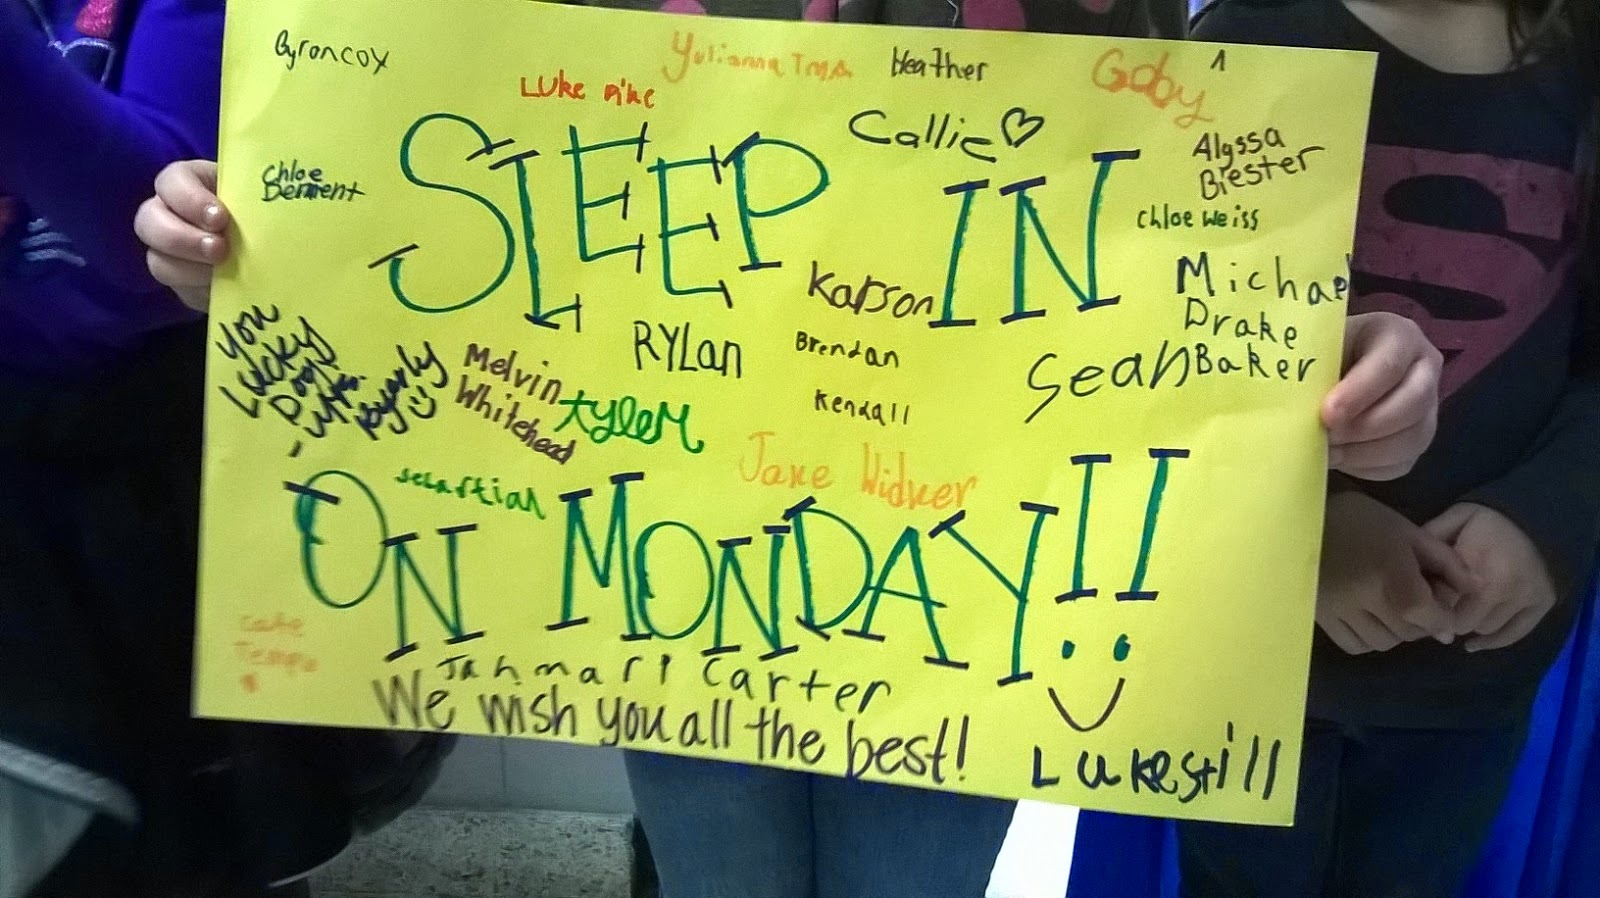 Byron cox
Luke Pike
Yulianna
Heather
Gaby
Callie♡
Alyssa
Biester
Chloe
Chloe Weiss
SLEEP IN
Michael
Drake
Karson
RYLan
Brendan
Sean Baker
Kendall
You
Lucky
Dogs
Kyarly
Melvin
Whitehead
Tyler
Sebastian
Jake Widner
ON MONDAY!!
Cate
Jahmari Carter
We wish you all the best!
Luke still